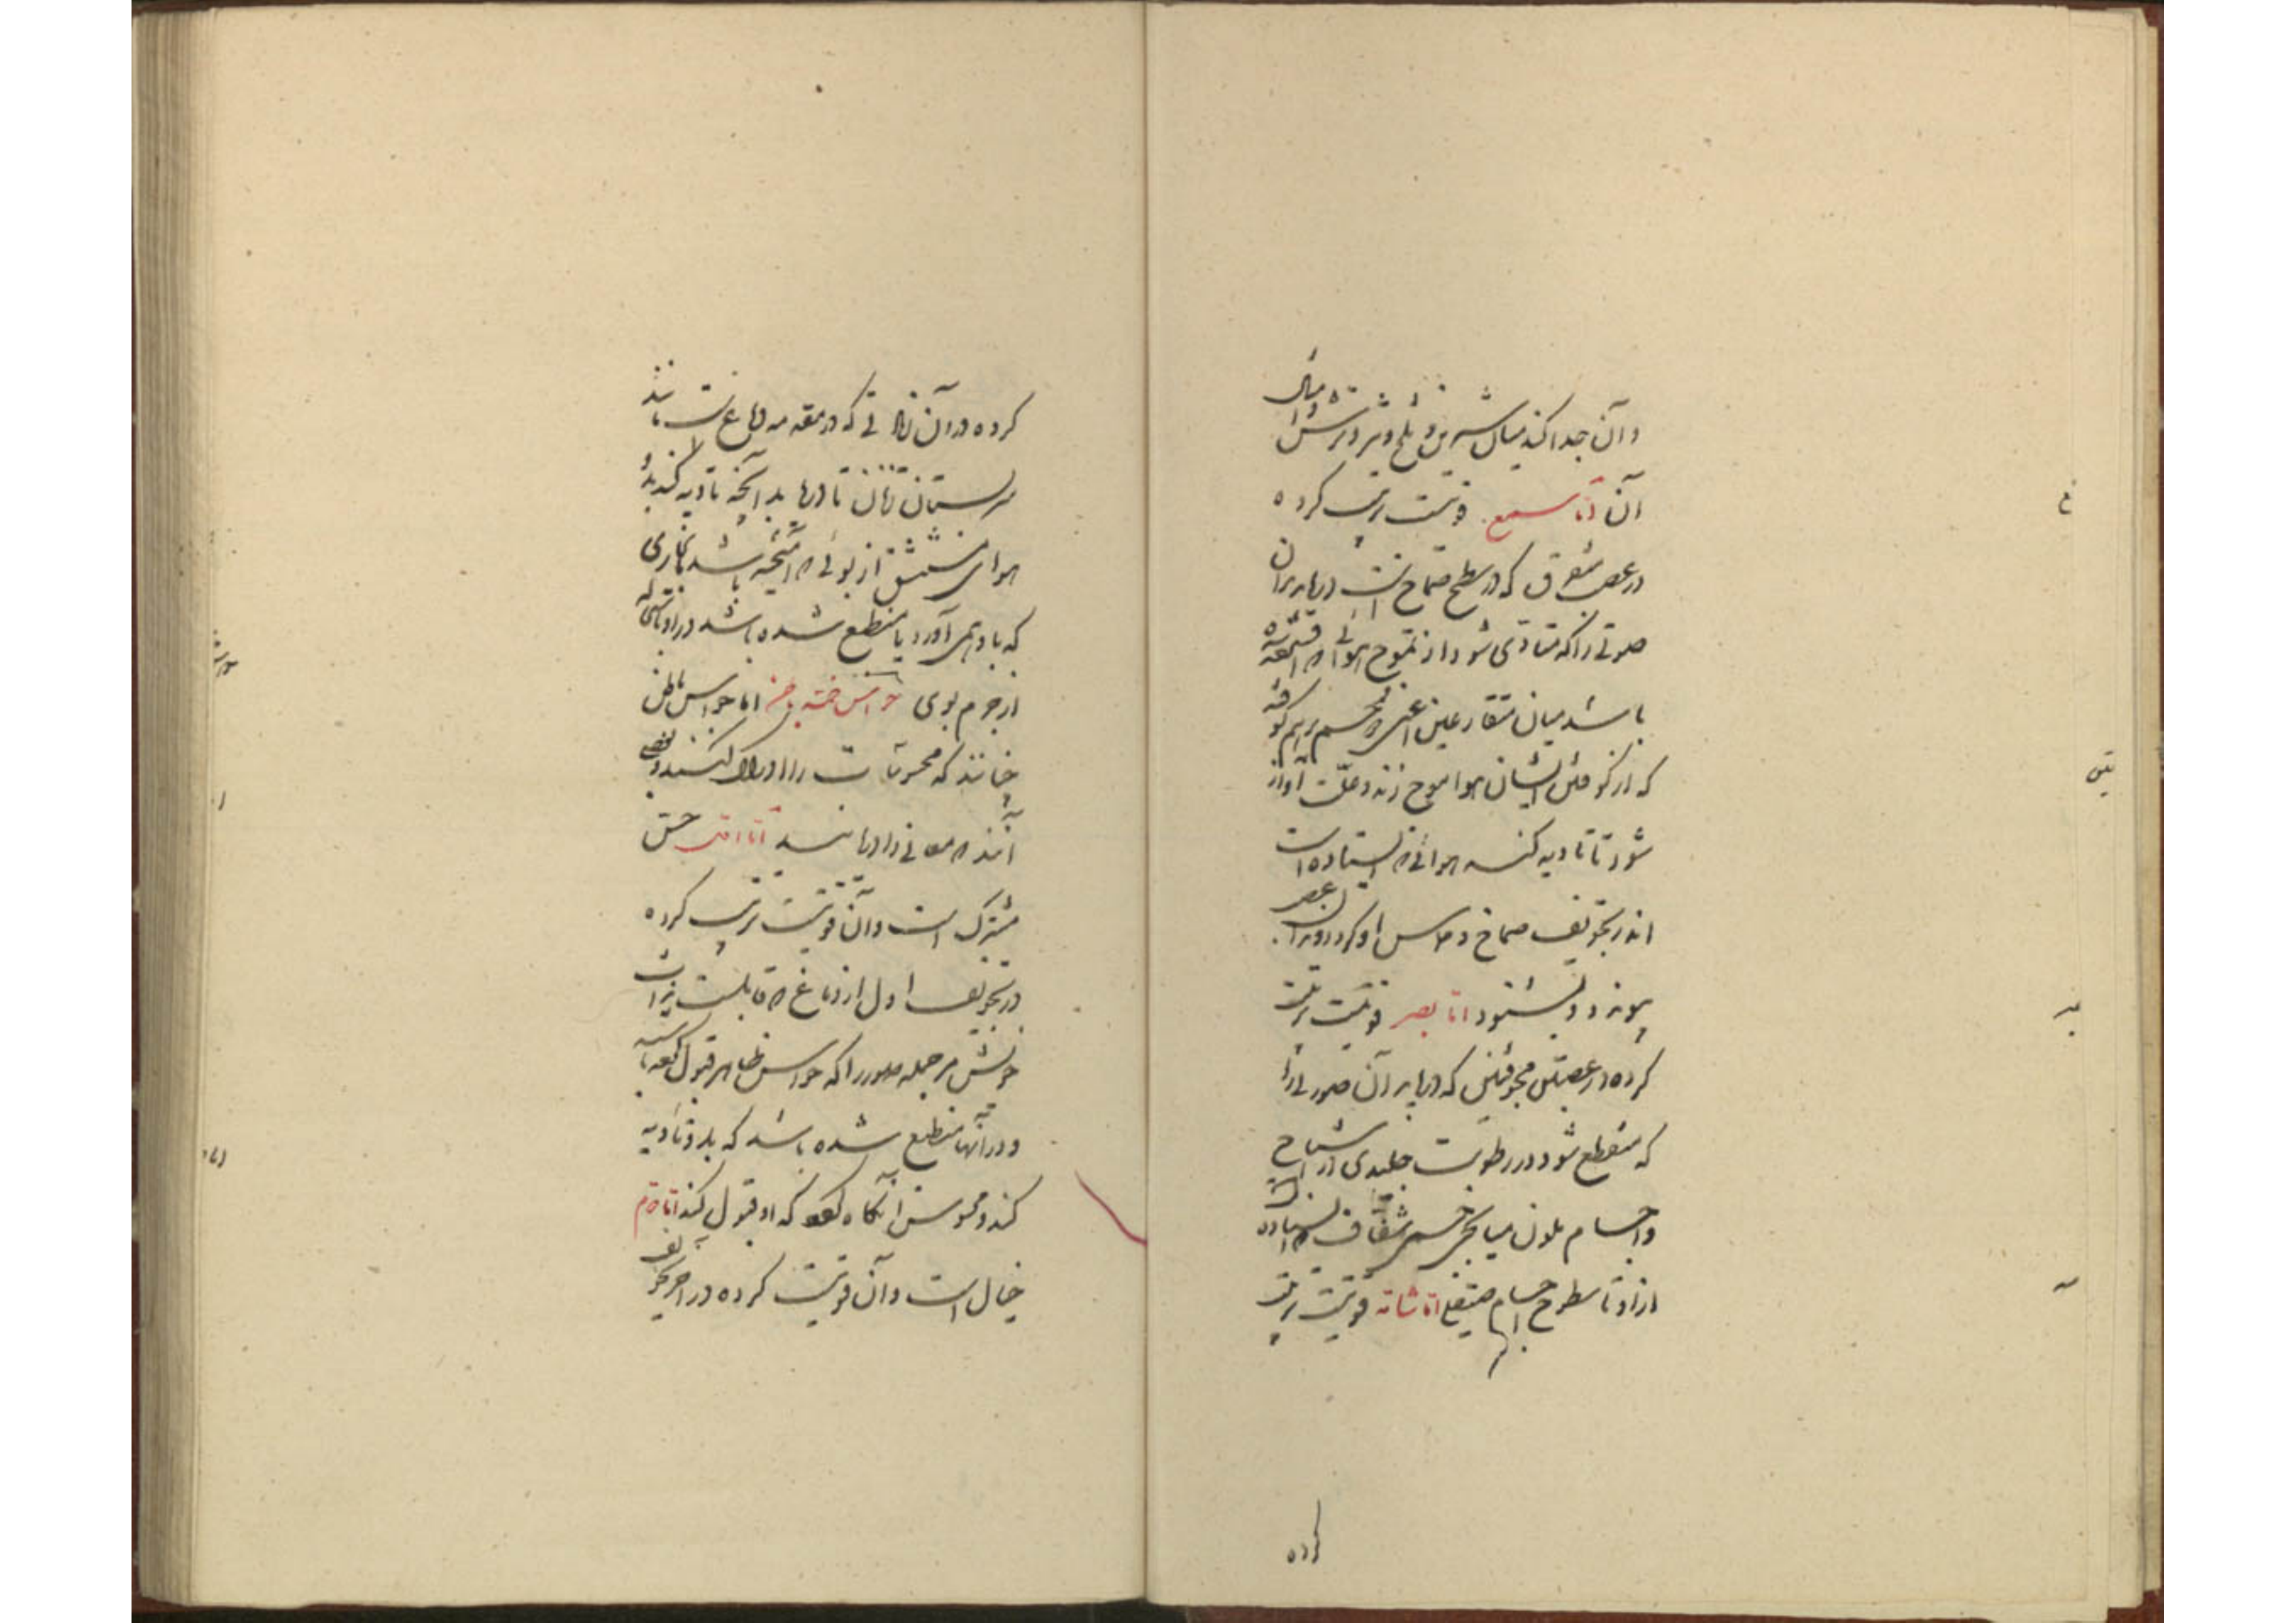 وآن جدا کند میان شیرین و تلخ و تیز و ترش و امثال
آن اما سمع قوتیست مرتب کرده
در عصب متفرق که در سطح صماخ است دریابد بدان
صوتی را که متأدی شود از تموج هوائی که
باشد میان متقارعین اعنی دو جسم بر هم کوفته
که از کوفتن ایشان هوا موج زند و علت آواز
شود تا تادیه کند هوائی که ایستاده است
اندر تجویف صماخ و مماس او گردد و بدان عصب
پیوندد و بشنود اما بصر قوتیست مرتب
کرده در عصبتین مجوفتین که دریابد آن صورتی را
که منطبع شود در رطوبت جلیدی از اشباح
و اجسام ملون بمیانجی جسمی شفاف که ایستاده است
از او تا سطوح اجسام صیقلی اما شامه قوتیست مرتب
کرده
کرده در آن که در مقدمه دماغ است مانند
سر پستان زنان تا دریابد آنچه تادیه کند بدو
هوای مستنشق از بوئی که آمیخته باشد ببخاری
که باد همی آورد یا منطبع شده باشد در او
از جرم بوی حواس خمسه اما حواس باطن
چنانند که محسوسات را ادراک کنند و بعضی
آنند که معانی را دریابند اما اول حس
مشترک است و آن قوتیست مرتب کرده
در تجویف اول از دماغ که قابلست بذات
خویش مر جمله صور را که حواس ظاهر قبول کرده باشند
و در آنها منطبع شده باشد که بدو تادیه
کند و محسوس آنگاه که او قبول کند اما دوم
خیال است و آن قوتیست کرده در آخر تجویف